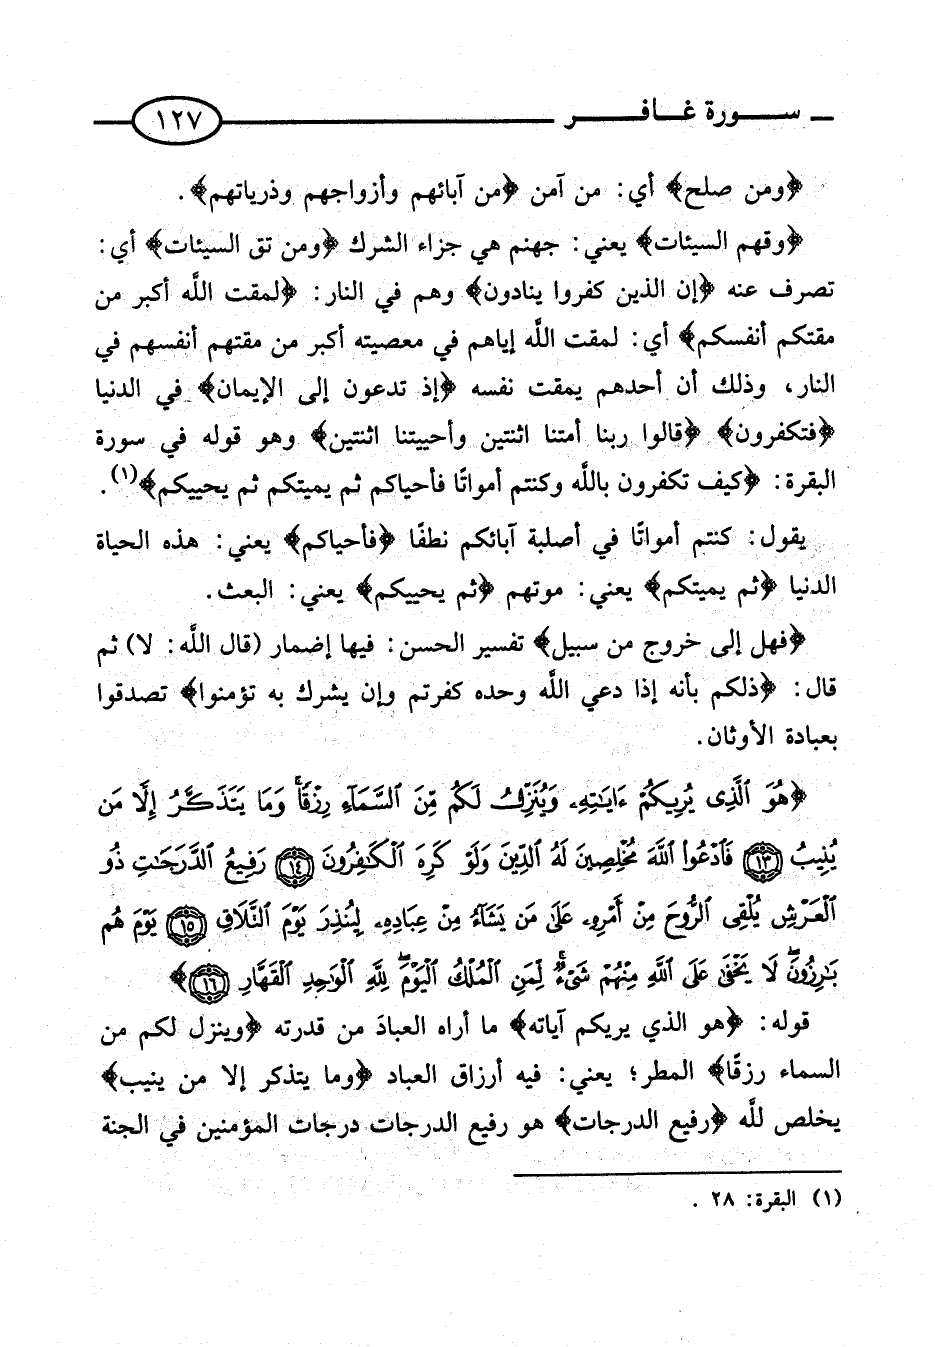 سورة غافر ١٢٧
﴿ومن صلح﴾ أي: من آمن ﴿من آبائهم وأزواجهم وذرياتهم﴾.
﴿وقهم السيئات﴾ يعني: جهنم هي جزاء الشرك ﴿ومن تق السيئات﴾ أي:
تصرف عنه ﴿إن الذين كفروا ينادون﴾ وهم في النار: ﴿لمقت الله أكبر من
مقتكم أنفسكم﴾ أي: لمقت اللَّه إياهم في معصيته أكبر من مقتهم أنفسهم في
النار، وذلك أن أحدهم يمقت نفسه ﴿إذ تدعون إلى الإيمان﴾ في الدنيا
﴿فتكفرون﴾ ﴿قالوا ربنا أمتنا اثنتين وأحييتنا اثنتين﴾ وهو قوله في سورة
البقرة: ﴿كيف تكفرون باللَّه وكنتم أمواتًا فأحياكم ثم يميتكم ثم يحييكم﴾(١).
يقول: كنتم أمواتًا في أصلبة آبائكم نطفًا ﴿فأحياكم﴾ يعني: هذه الحياة
الدنيا ﴿ثم يميتكم﴾ يعني: موتهم ﴿ثم يحييكم﴾ يعني: البعث.
﴿فهل إلى خروج من سبيل﴾ تفسير الحسن: فيها إضمار (قال اللَّه: لا) ثم
قال: ﴿ذلكم بأنه إذا دعي اللَّه وحده كفرتم وإن يشرك به تؤمنوا﴾ تصدقوا
بعبادة الأوثان.
﴿هُوَ ٱلَّذِى يُرِيكُمْ ءَايَٰتِهِۦ وَيُنَزِّلُ لَكُم مِّنَ ٱلسَّمَآءِ رِزْقًاۚ وَمَا يَتَذَكَّرُ إِلَّا مَن
يُنِيبُ ١٣ فَٱدْعُوا۟ ٱللَّهَ مُخْلِصِينَ لَهُ ٱلدِّينَ وَلَوْ كَرِهَ ٱلْكَٰفِرُونَ ١٤ رَفِيعُ ٱلدَّرَجَٰتِ ذُو
ٱلْعَرْشِ يُلْقِى ٱلرُّوحَ مِنْ أَمْرِهِۦ عَلَىٰ مَن يَشَآءُ مِنْ عِبَادِهِۦ لِيُنذِرَ يَوْمَ ٱلتَّلَاقِ ١٥ يَوْمَ هُم
بَٰرِزُونَۖ لَا يَخْفَىٰ عَلَى ٱللَّهِ مِنْهُمْ شَىْءٌۚ لِّمَنِ ٱلْمُلْكُ ٱلْيَوْمَۖ لِلَّهِ ٱلْوَٰحِدِ ٱلْقَهَّارِ ١٦﴾
قوله: ﴿هو الذي يريكم آياته﴾ ما أراه العبادَ من قدرته ﴿وينزل لكم من
السماء رزقًا﴾ المطر؛ يعني: فيه أرزاق العباد ﴿وما يتذكر إلا من ينيب﴾
يخلص للَّه ﴿رفيع الدرجات﴾ هو رفيع الدرجات درجات المؤمنين في الجنة
(١) البقرة: ٢٨ .